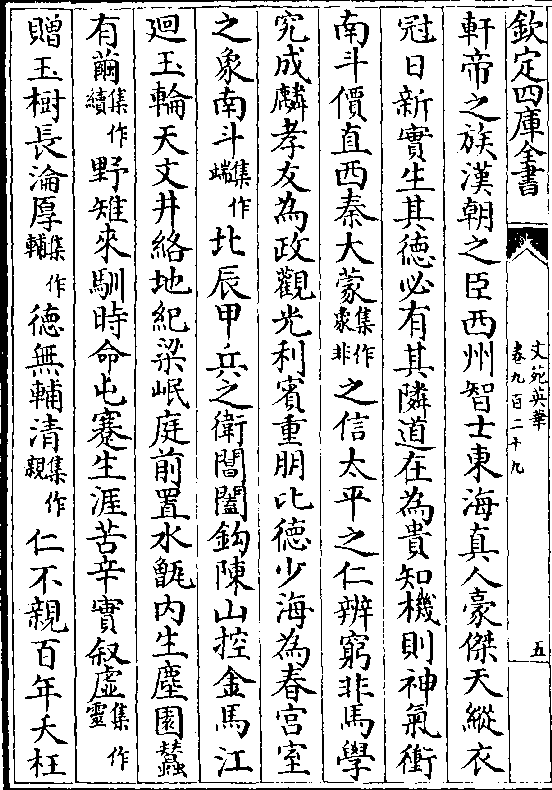 欽定四庫全書
文苑英華
卷九百二十九
五
軒帝之族漢朝之臣西州智士東海真人豪傑天縱衣
冠日新實生其德必有其隣道在為貴知機則神氣衝
南斗價直西秦大蒙集作衆非之信太平之仁辨窮非馬學
究成麟孝友為政觀光利賓重朋比德少海為春宫室
之象南斗集作端北辰甲兵之衛閶闔鈎陳山控金馬江
廻玉輪天文井絡地紀梁岷庭前置水甑內生塵園蠶
有繭集作續野雉來馴時命屯蹇生涯苦辛實叙虛集作靈
贈玉樹長淪厚集作輔德無輔清集作親仁不親百年夭枉